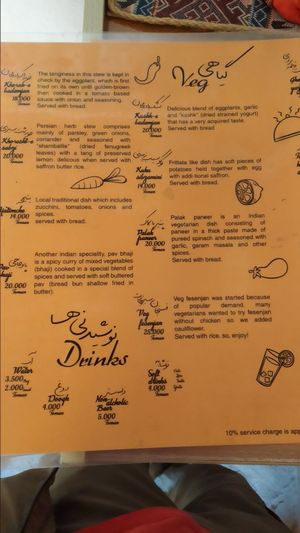 Khoresh-e
bademjan
18.000
Toman
The tanginess in this stew is kept in
check by the eggplant, which is first
fried on its own until golden-brown
then cooked in a tomato based
sauce with onion and seasoning.
Served with bread.
Veg
گیاهی
20.000
Toman
Persian herb stew comprises
mainly of parsley, green onions,
coriander and seasoned with
"shambalile" (dried fenugreek
leaves) with a tang of preserved
lemon delicious when served with
saffron butter rice.
Kashk-e
bademjan
20.000
Toman
Delicious blend of eggplants, garlic
and "kashk" (dried strained yogurt)
that has a very acquired taste.
Served with bread.
Kuku
sibzamini
14.000
Toman
Frittata like dish has soft pieces of
potatoes held together with egg
with addi-tional saffron.
Served with bread.
14.000
Toman
Local traditional dish which includes
zucchini, tomatoes, onions and
spices.
served with bread.
Palak
paneer
20.000
Toman
Palak paneer is an Indian
vegetarian dish consisting of
paneer in a thick paste made of
pureed spinach and seasoned with
garlic, garam masala and other
spices.
Served with bread.
bhaji
20.000
Toman
Another indian speciality, pav bhaji
is a spicy curry of mixed vegetables
(bhaji) cooked in a special blend of
spices and served with soft buttered
pav (bread bun shallow fried in
butter).
Veg
fesenjan
25.000
Toman
Veg fesenjan was started because
of popular demand, many
vegetarians wanted to try fesenjan
without chicken so we added
cauliflower.
Served with rice, so, enjoy!
نوشیدنی ها
Drinks
آب
Water
3.500
2.000
Toman
دوغ
Doogh
4.000
Toman
Non-
alcholic
Beer
5.000
Toman
Soft
drinks
4.000
Toman
10% service charge is app